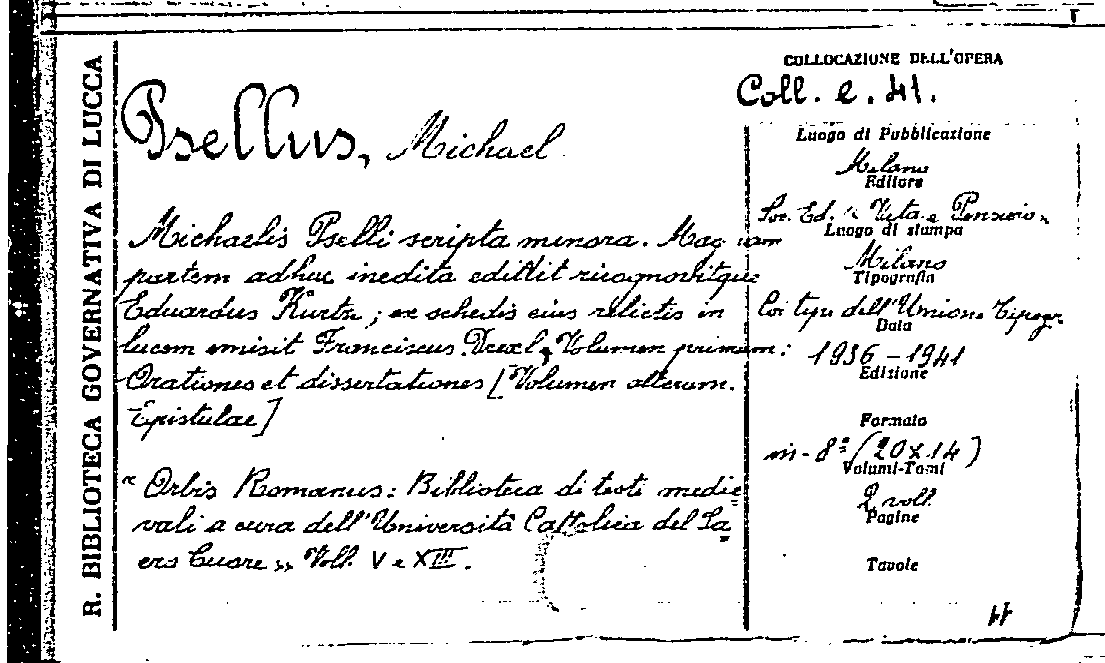 R. BIBLIOTECA GOVERNATIVA DI LUCCA
Psellus, Michael
Michaelis Pselli scripta minora. Mag nam
partem adhuc inedita edidit recognovitque
Eduardus Kurtz; ex schedis eius relictis in
lucem emisit Franciscus Drexl, Volumen primum:
Orationes et dissertationes [Volumen alterum.
Epistulae]
"Orbis Romanus: Biblioteca di testi medie
vali a cura dell'Università Cattolica del Sa
cro Cuore" Voll. V e XII.
COLLOCAZIONE DELL'OPERA
Coll. e. 41.
Luogo di Pubblicazione
Milano
Editore
Soc. Ed. "Vita e Pensiero"
Luogo di stampa
Milano
Tipografia
Coi tipi dell'Unione Tipogr.
Data
1936-1941
Edizione
Formato
in-8º (20x14)
Volumi-Tomi
2 voll.
Pagine
Tavole